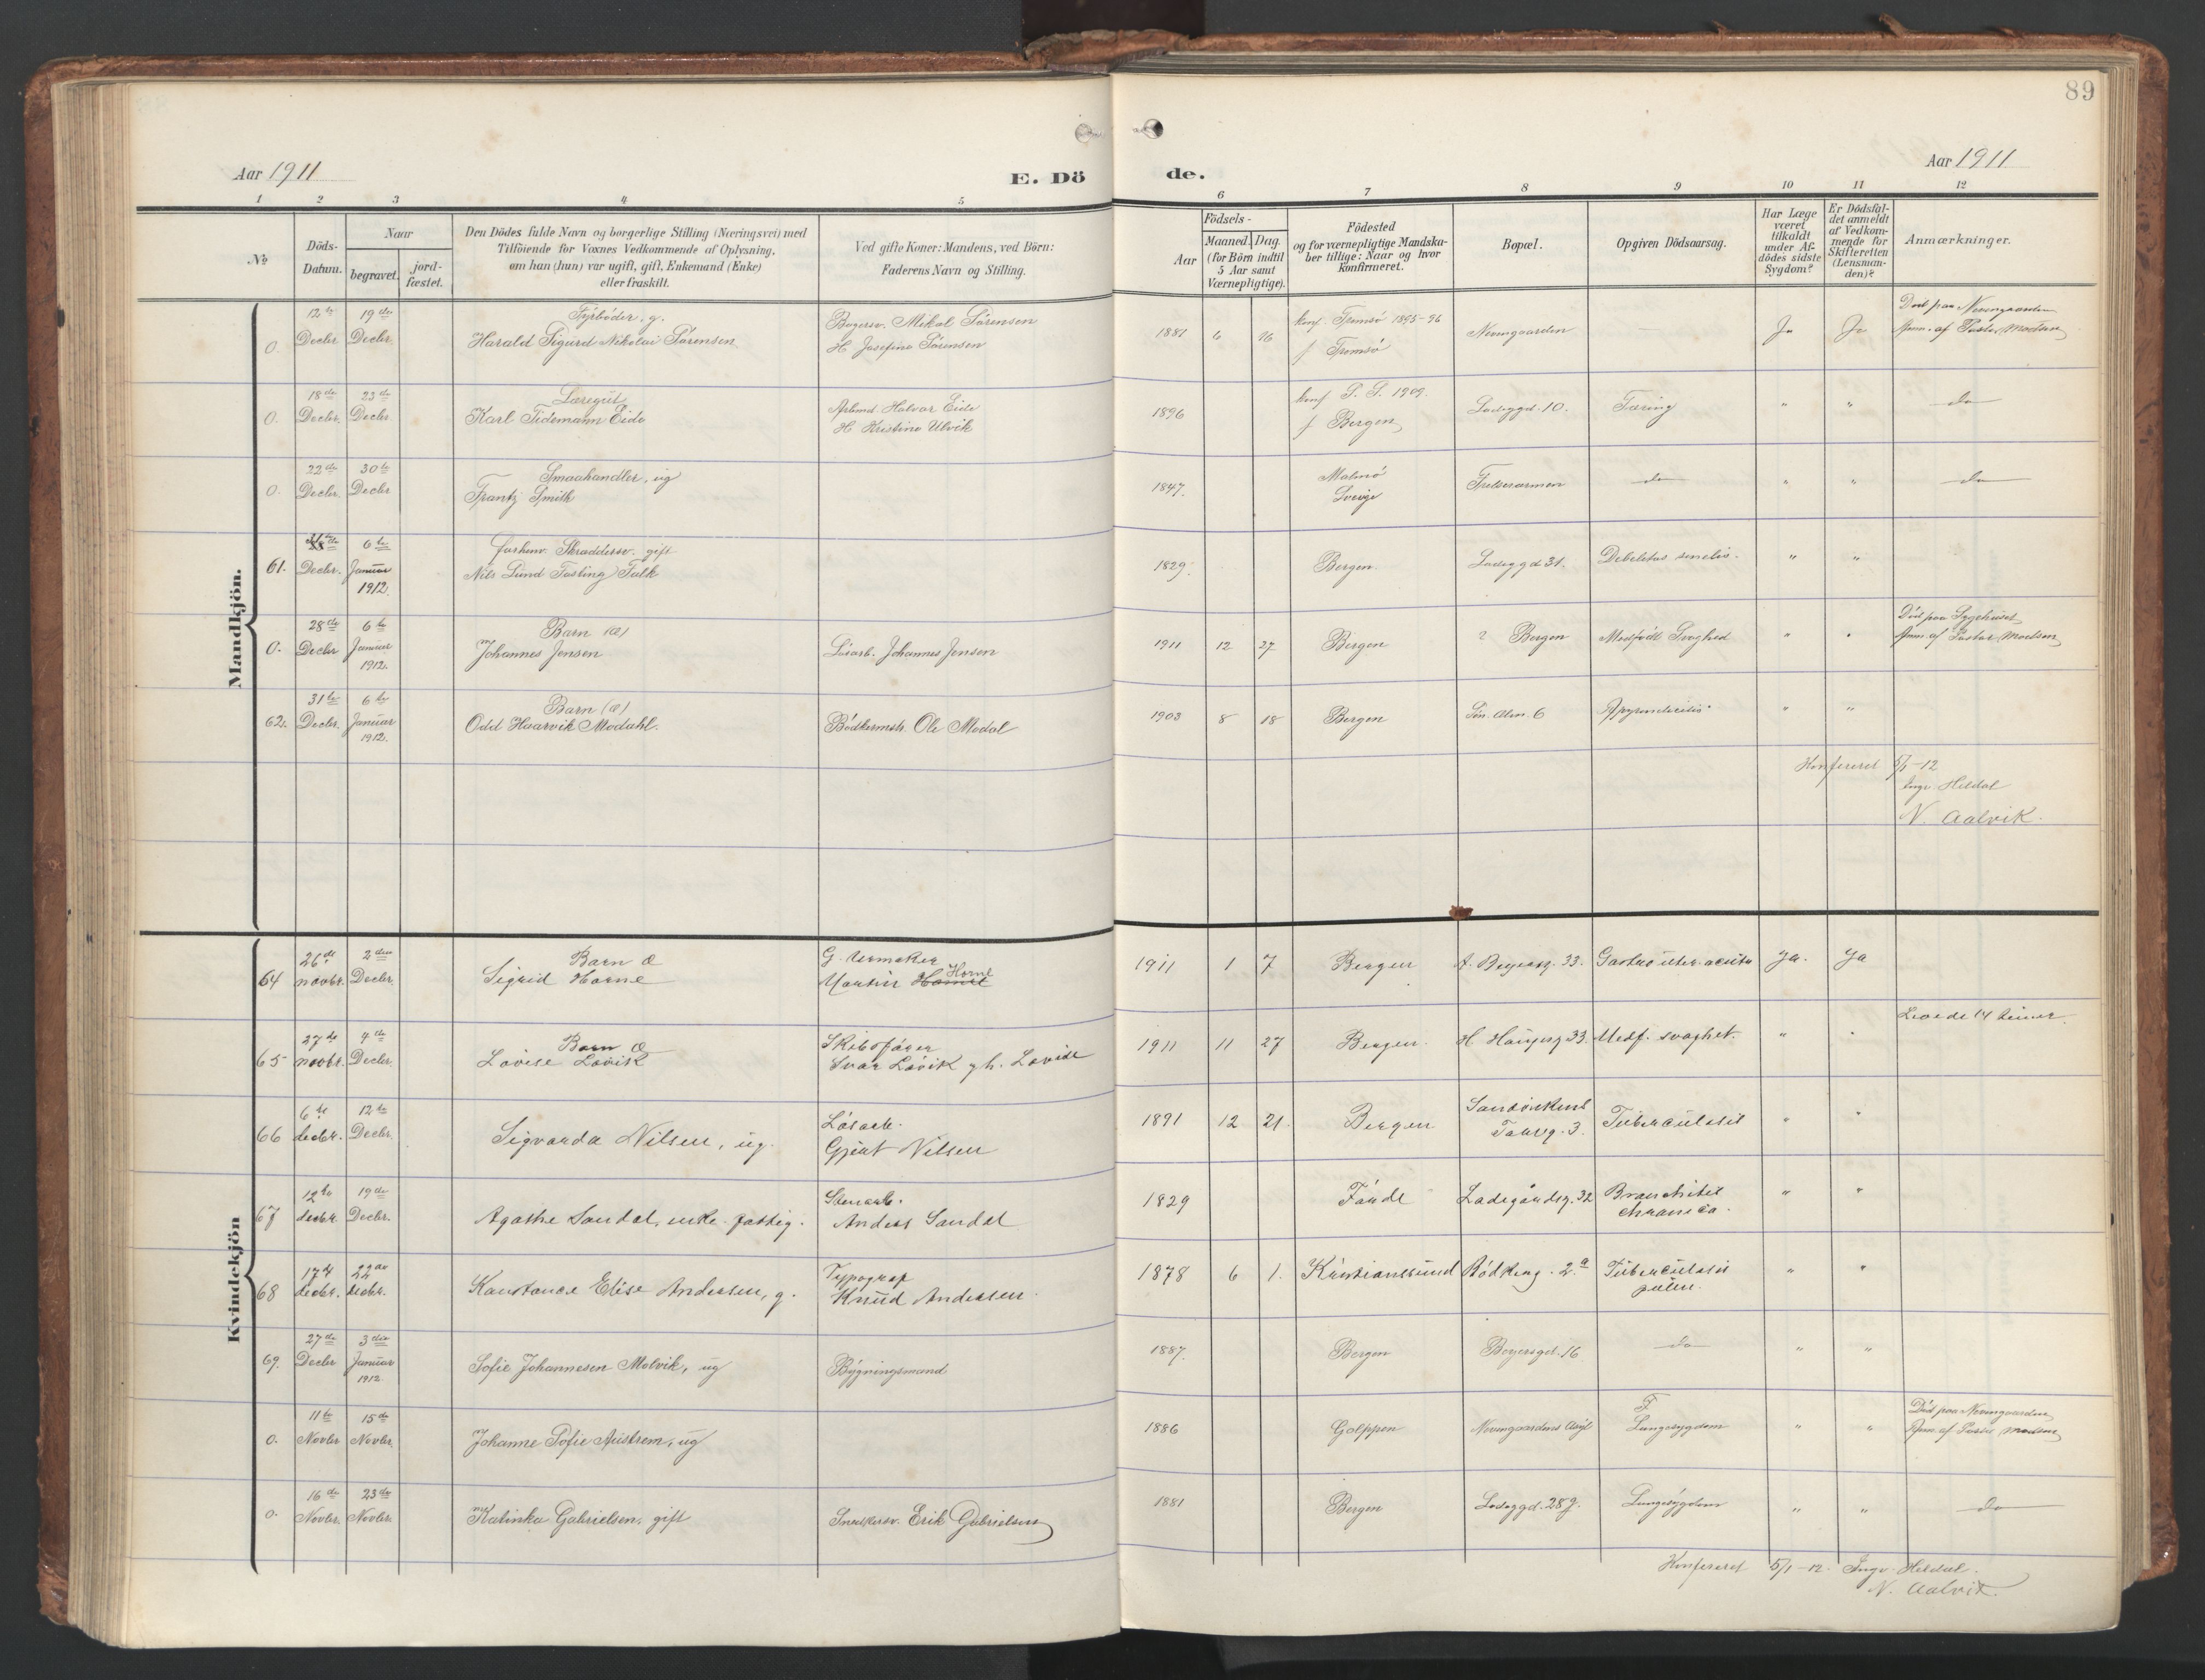 89
Aar 1911
E. Dö
de.
Aar 1911
1
2
3
4
5
6
7
8
9
10
11
12
No
Döds-
Datum.
Naar
begravet.
jord-
fæstet.
Den Dödes fulde Navn og borgerlige Stilling (Næringsvei) med
Tilföiende for Voxnes Vedkommende af Oplysning,
om han (hun) var ugift, gift, Enkemand (Enke)
eller fraskilt.
Ved gifte Koner: Mandens, ved Börn:
Faderens Navn og Stilling.
Födsels-
Aar
Maaned. Dag.
(for Börn indtil
5 Aar samt
Værnepligtige).
Födested
og for værnepligtige Mandska-
ber tillige: Naar og hvor
konfirmeret.
Bopæl.
Opgiven Dödsaarsag.
Har Læge
været
tilkaldt
under Af-
dödes sidste
Sygdom?
Er Dödsfal-
det anmeldt
af Vedkom-
mende for
Skifteretten
(Lensman-
den)?
Anmærkninger.
Mandkjön.
12te 19de Fyrböder, g. Bagersv. Mikal Sörensen konf. Tromsö 1895-96 Död paa Neevngaarden
0. Decbr. Decbr. Harald Sigurd Nikolai Sörensen H Josefine Sörensen 1881 6 16 f Tromsö Neevngaarden Ja Ja Anm. af Pastor Madsen
18de 23de Læregut Arbmd. Halvor Eide konf P. S. 1909.
0. Decbr. Decbr. Karl Tidemann Eide H Kristine Ulvik 1896 f Bergen Ladeggd. 10. Tæring " " do
22de 30te Smaahandler, ug Malmö
0. Decbr. Decbr Frantz Smith 1847. Sverige Frelsesarmen do " " do
6te forhenv. Skraddersv. gift
61. Decbr. Januar Nils Lund Fasting Falk 1829. Bergen. Ladeggd 31. Debelitas senelis. " "
1912.
28de 6te Barn (æ) Död paa Sygehuset
0. Decbr Januar Johannes Jensen Lösarb. Johannes Jensen 1911 12 27 Bergen ? Bergen Medfödt Svaghed " " Anm. af Pastor Madsen
1912.
31te 6te Barn (æ)
62. Decbr. Januar Odd Haarvik Modahl. Bödkermstr. Ole Modal 1903 8 18 Bergen 6 " "
1912.
Konfereret 5/1-12
Ingv. Heldal
N. Aalvik.
Kvindekjön
26de 2den Barn æ G. Urmaker
64 novbr. Decbr. Sigrid Horne Martin Horne 1911 1 7 Bergen A. Beyersg. 33. Gastro enter. acuta Ja. Ja
27de 4de Barn æ Levede 14 timer.
65 novbr. Decbr. Lovise Lövik Ivar Lövik gh. Lovise 1911 11 27 Bergen. H Haugsg 33. Medf. svaghet. " "
6te 12te Lösarb. Sandvikens
66 decbr. Decbr. Sigvarda Nilsen, ug. Gjert Nilsen 1891 12 21. Bergen Taarg. 3. Tuberculosis " "
12te 19de Stenarb. Bronchitis
67 decbr. Decbr. Agathe Sandal, enke. fattig. Anders Sandal 1829 Förde Ladegårdsg. 32 chronica. " "
17de 22de Typograf
68 decbr. decbr. Konstance Elise Andersen, g. Knud Andersen. 1878 6 1. Kristianssund Bödkerg. 2a Tuberculosis " "
pulm.
27de 3die
69. Decbr Januar Sofie Johannesen Molvik, ug Bygningsmand 1887. Bergen Beyersgd. 16 do " "
1912.
11te 15de F. Död paa Neevngaarden
0. Novbr Novbr. Johanne Sofie Austrem, ug 1886 Neevngaardens Asyl Lungesygdom " " Anm. af Pastor Madsen
16de 23de
0. Novbr. Novbr. Katinka Gabrielsen, gift Snedkersv. Erik Gabrielsen 1881 Bergen Ladeggd. 28g. Lungesygdom " " Do
Konfereret 5/1-12. Ingv. Heldal.
N. Aalvik.